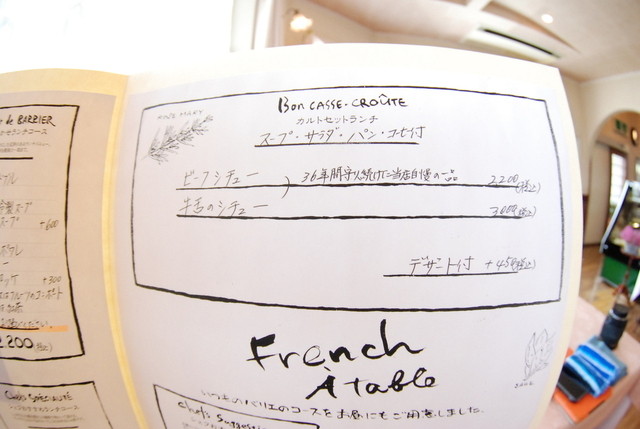 BARBIER
+600
+300
2,200(税込)
ROSE MARY
Bon CASSE-CROÛTE
カルトセットランチ
スープ・サラダ・パン・コーヒー付
ビーフシチュー
36年間守り続けた当店自慢の一品
2,200(税込)
牛舌のシチュー
3,000(税込)
デザート付 +450(税込)
French
À table
いつものバリエのコースをお昼にもご用意しました.
Chef's Suggestion
Chef's SPÉCIALITÉ